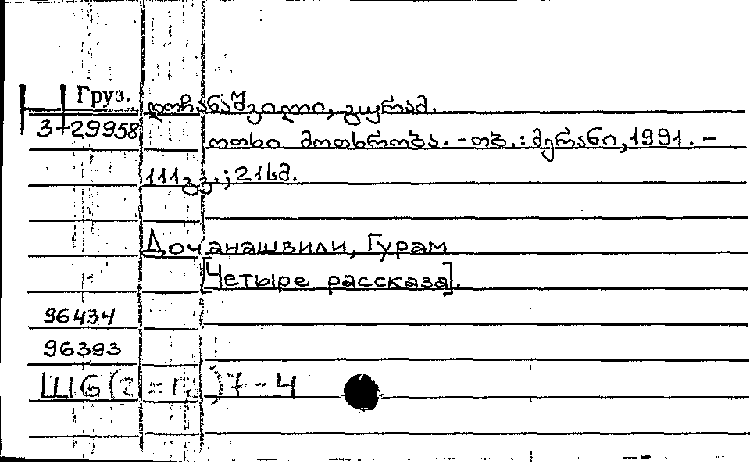 Груз. დოჩანაშვილი, გურამ.
3-29958 ოთხი მოთხრობა. - თბ. : მერანი, 1991. -
111გვ. ; 21სმ.
Дочанашвили, Гурам
[Четыре рассказа].
96434
96393
Ш6(2=Г)7-4